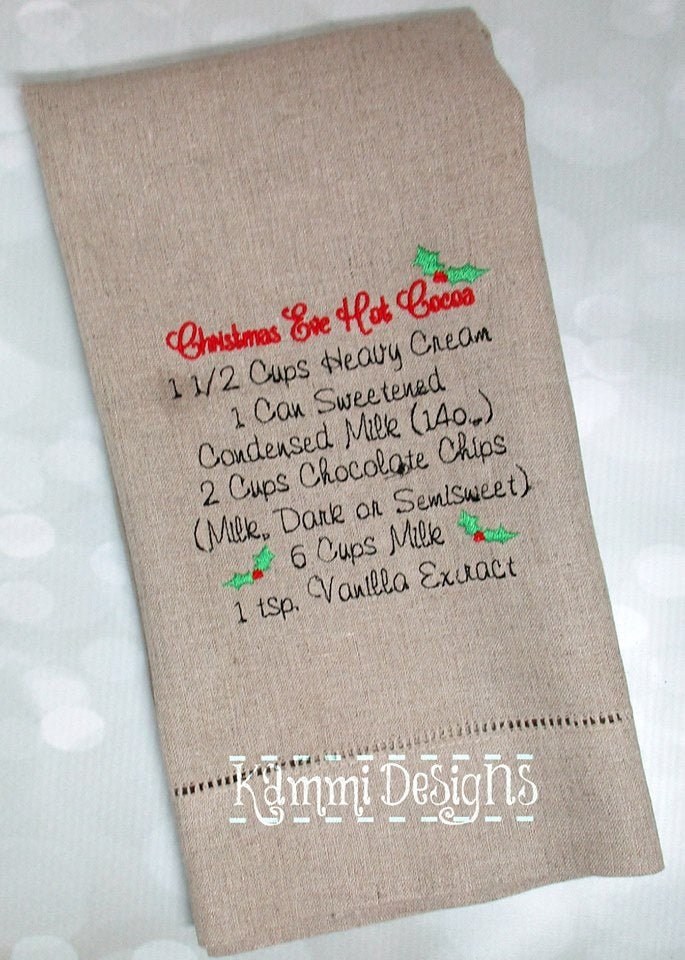 Christmas Eve Hot Cocoa
1 1/2 Cups Heavy Cream
1 Can Sweetened
Condensed Milk (14o..)
2 Cups Chocolate Chips
(Milk, Dark or Semisweet)
6 Cups Milk
1 tsp. Vanilla Extract
Kammi Designs